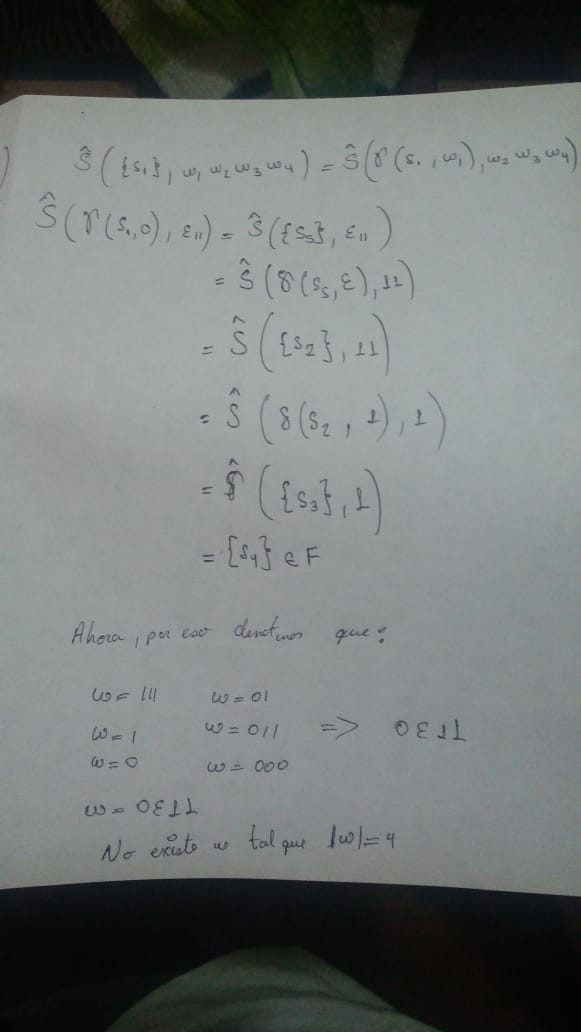 Ŝ({s₁}, w₁ w₂ w₃ w₄) = Ŝ(γ(s₁, w₁), w₂ w₃ w₄)
Ŝ(γ(s₁, 0), ε11) = Ŝ({s₅}, ε11)
= Ŝ(δ(s₅, ε), 11)
= Ŝ({s₂}, 11)
= Ŝ(δ(s₂, 1), 1)
= Ŝ({s₃}, 1)
= {s₄} ∈ F
Ahora, por eso que:
w = 111 w = 01
w = 1 w = 011 => 0ε11
w = 0 w = 000
w = 0ε11
No existe w tal que |w| = 4